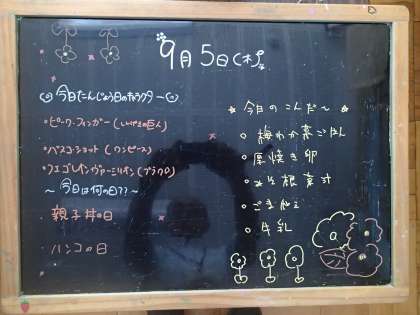 9月5日(木)
今日たんじょう日のキャラクター
・ピーク・フィンガー(しんげきの巨人)
・バスコ・ショット(ワンピース)
・フエゴレオン・ヴァーミリオン(ブラクロ)
～今日は何の日??～
親子丼の日
ハンコの日
★今日のこんだ〜
梅わか菜ごはん
厚焼き卵
根菜汁
ごま和え
牛乳